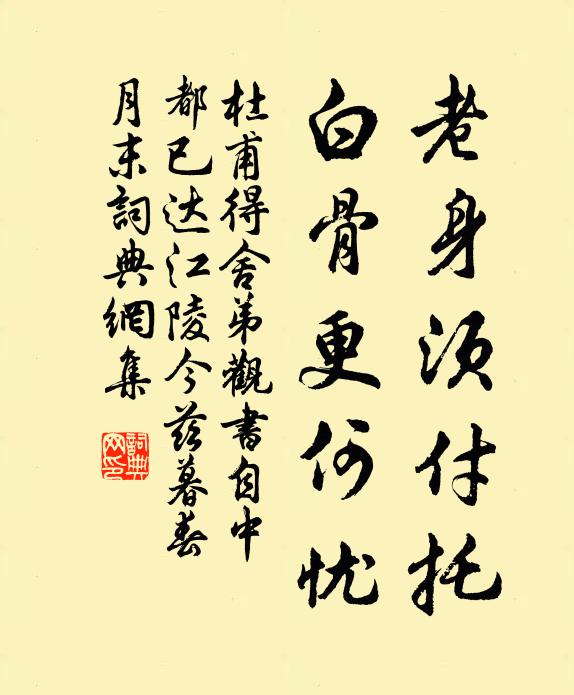 老身须付托
白骨更何忧
杜甫得舍弟觀書自中
都已达江陵今兹暮春
月末詞典網集
詞典
网印